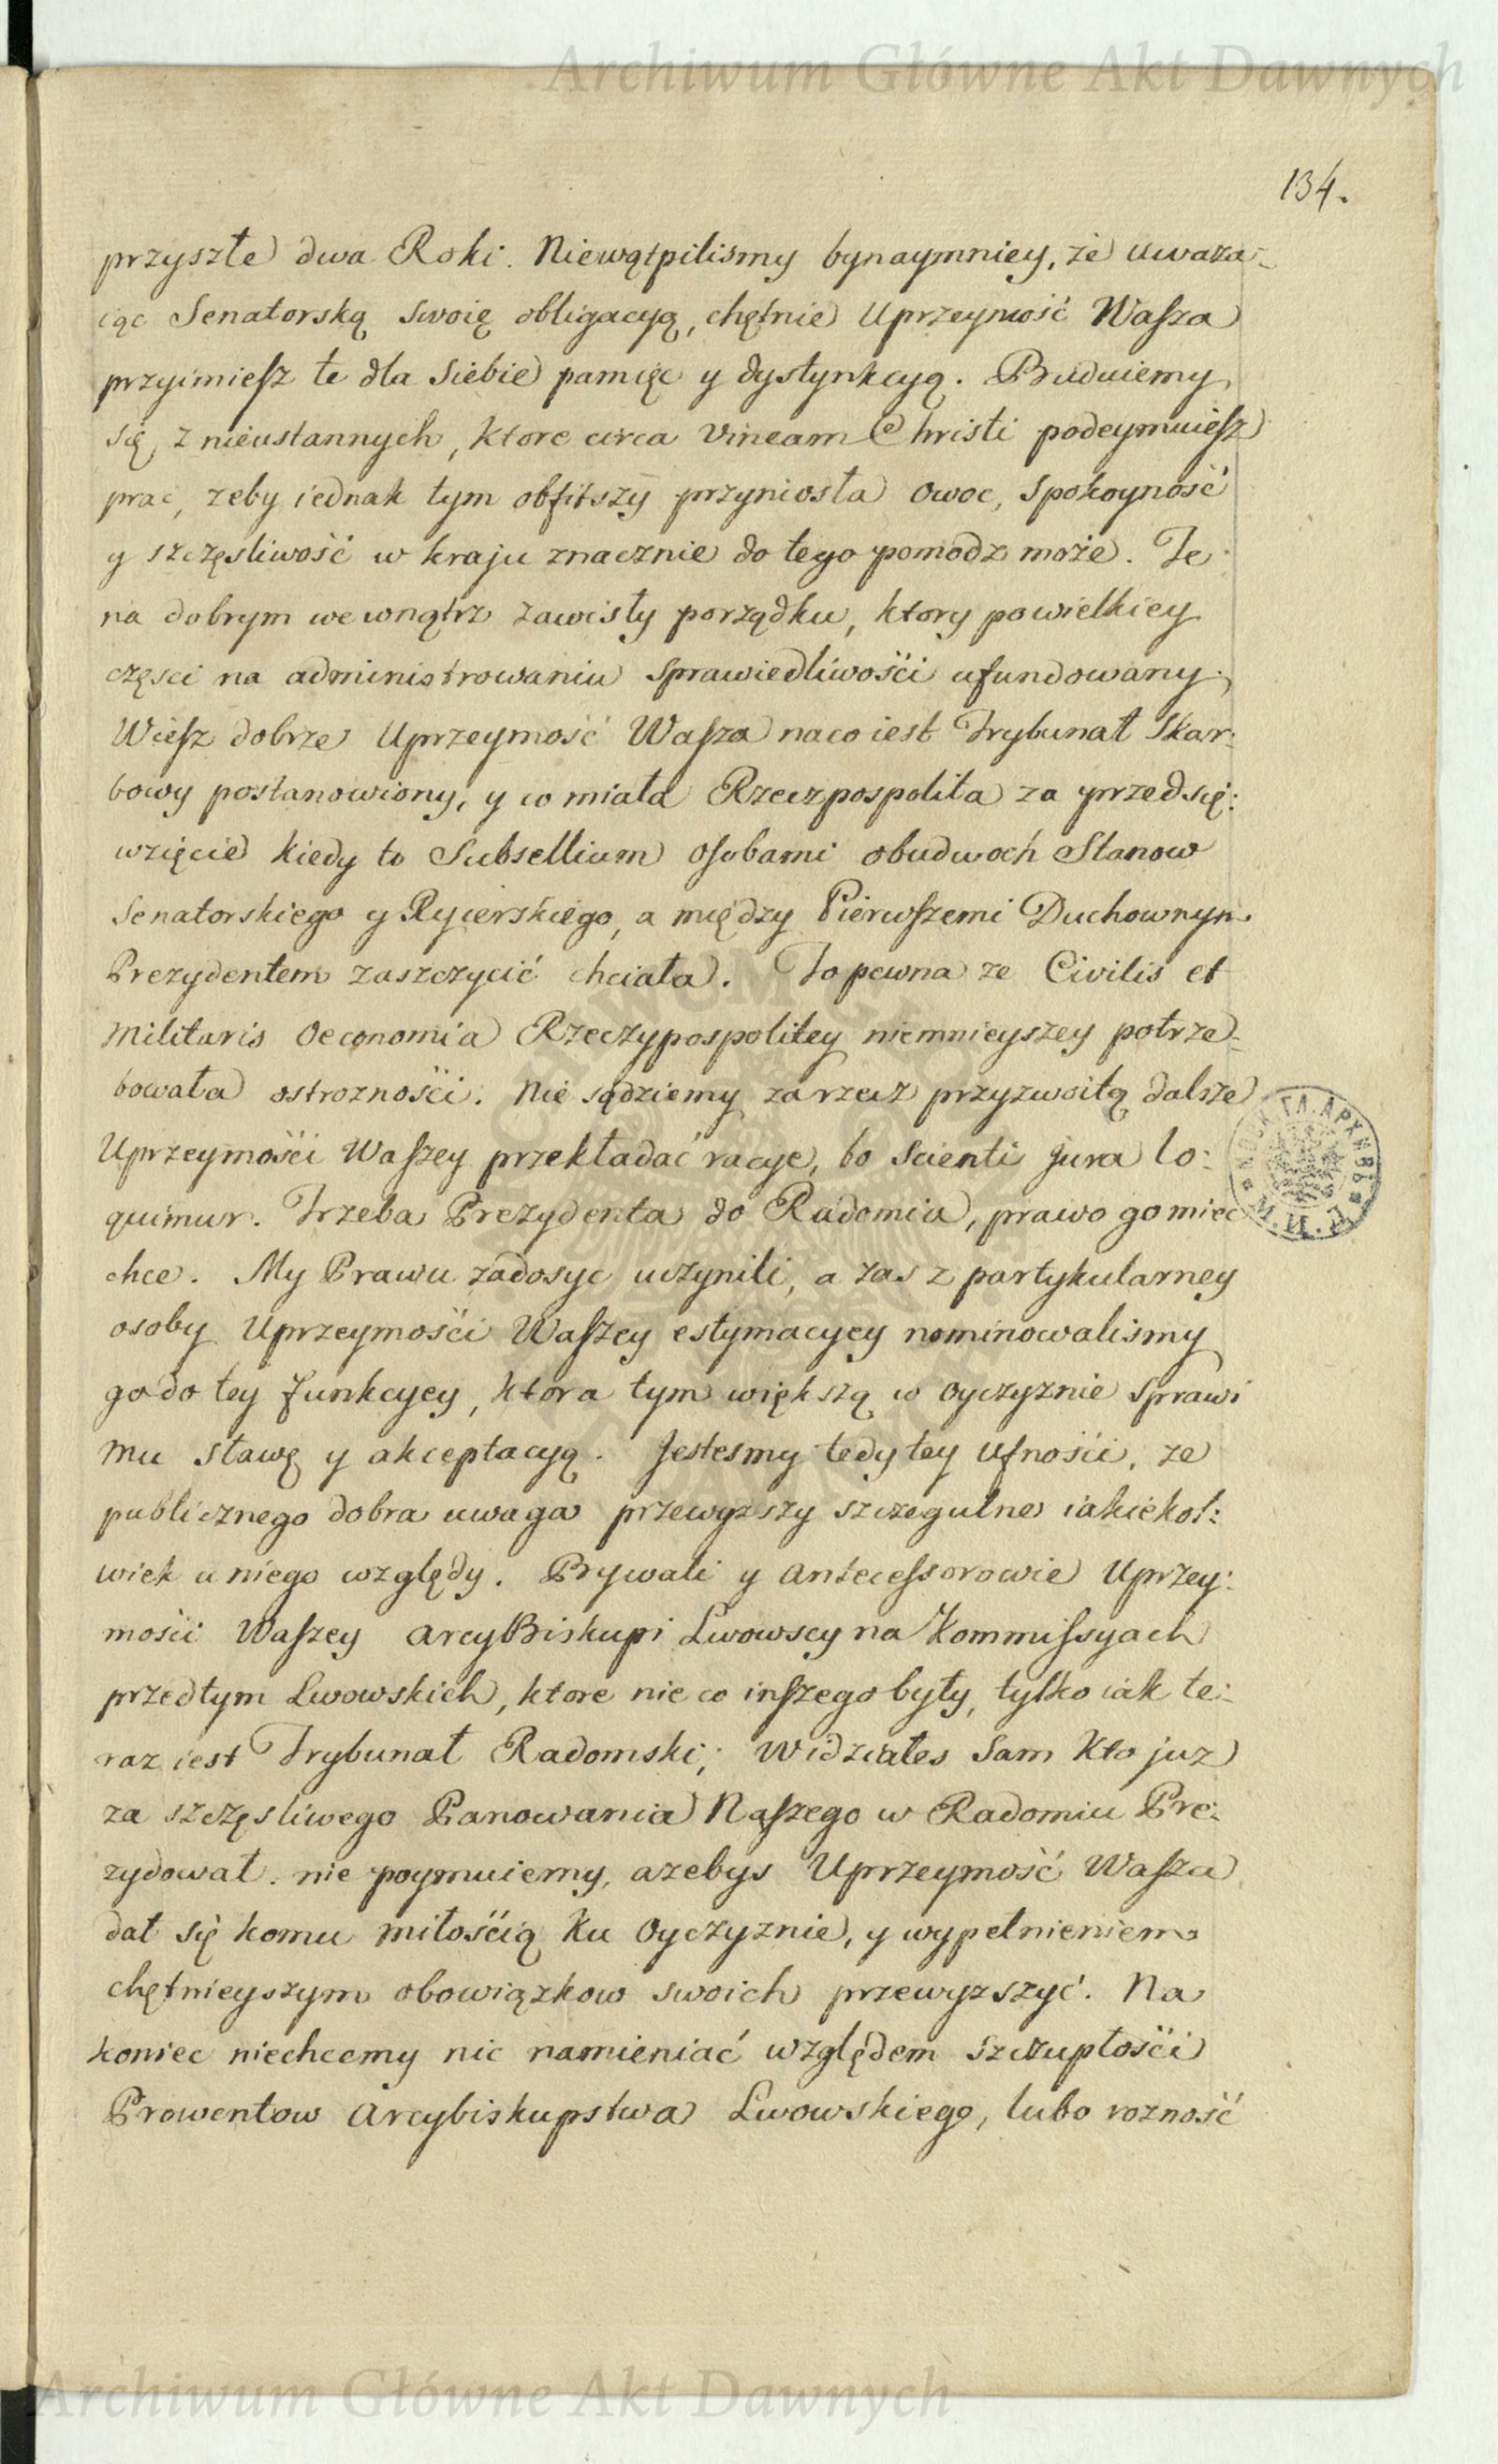 Archiwum Główne Akt Dawnych
134.
przyszłe dwa Roki. Niewątpilismy bynaymniey, że uważa-
iąc Senatorską swoię obligacyą, chętnie Uprzeymość Waſza
przyimieſz te dla Siebie pamięc y dystynkcyą. Buduiemy
się z nieustannych, ktore circa Vineam Christi podeymuieſz
prac, zeby iednak tym obfitszy przyniosła owoc, spokoyność
y szczęsliwość w kraju znacznie do tego pomodz może. Te
na dobrym wewnątrz zawisły porządku, ktory powielkiey
częsci na administrowaniu sprawiedliwośći ufundowany.
Wieſz dobrze Uprzeymość Waſza naco iest Trybunał Skar:
bowy postanowiony, y co miała Rzeczpospolita za przedsię:
wzięcie kiedy to Subsellium osobami obudwoch Stanow
Senatorskiego y Rycerskiego, a między Pierwſzemi Duchownym
Prezydentem zaszczycić chciała. To pewna ze Civilis et
Militaris Oeconomia Rzeczypospolitey niemnieyszey potrze-
bowała ostroznośći. Nie sądziemy za rzecz przyzwoitą dalsze
Uprzeymośći Waſzey przekładać racye, bo Scienti jura lo:
quimur. Trzeba Prezydenta do Radomia, prawo go miec
chce. My Prawu zadosyc uczynili, a zas z partykularney
osoby Uprzeymośći Waſzey estymacyey nominowalismy
go do tey funkcyey, ktora tym większą w Oyczyznie sprawi
mu sławę y akceptacyą. Jestesmy tedy tey ufnośći, ze
publicznego dobra uwaga przewyzszy szczegulne iakiekol:
wiek u niego względy. Bywali y Antecessorowie Uprzey:
mośći Waſzey ArcyBiskupi Lwowscy na Kommiſsyach
przedtym Lwowskich, ktore nie co inſzego były, tylko iak te:
raz iest Trybunał Radomski; Widziałes Sam kto juz
za szczęsliwego Panowania Naſzego w Radomiu Pre:
zydował. nie poymuiemy, azebys Uprzeymość Waſza
dał się komu miłośćią ku Oyczyznie, y wypełnieniem
chętnieyszym obowiązkow swoich przewyzszyć. Na
koniec niechcemy nic namieniać względem szczupłośći
Prowentow Arcybiskupstwa Lwowskiego, lubo rozność
Archiwum Główne Akt Dawnych